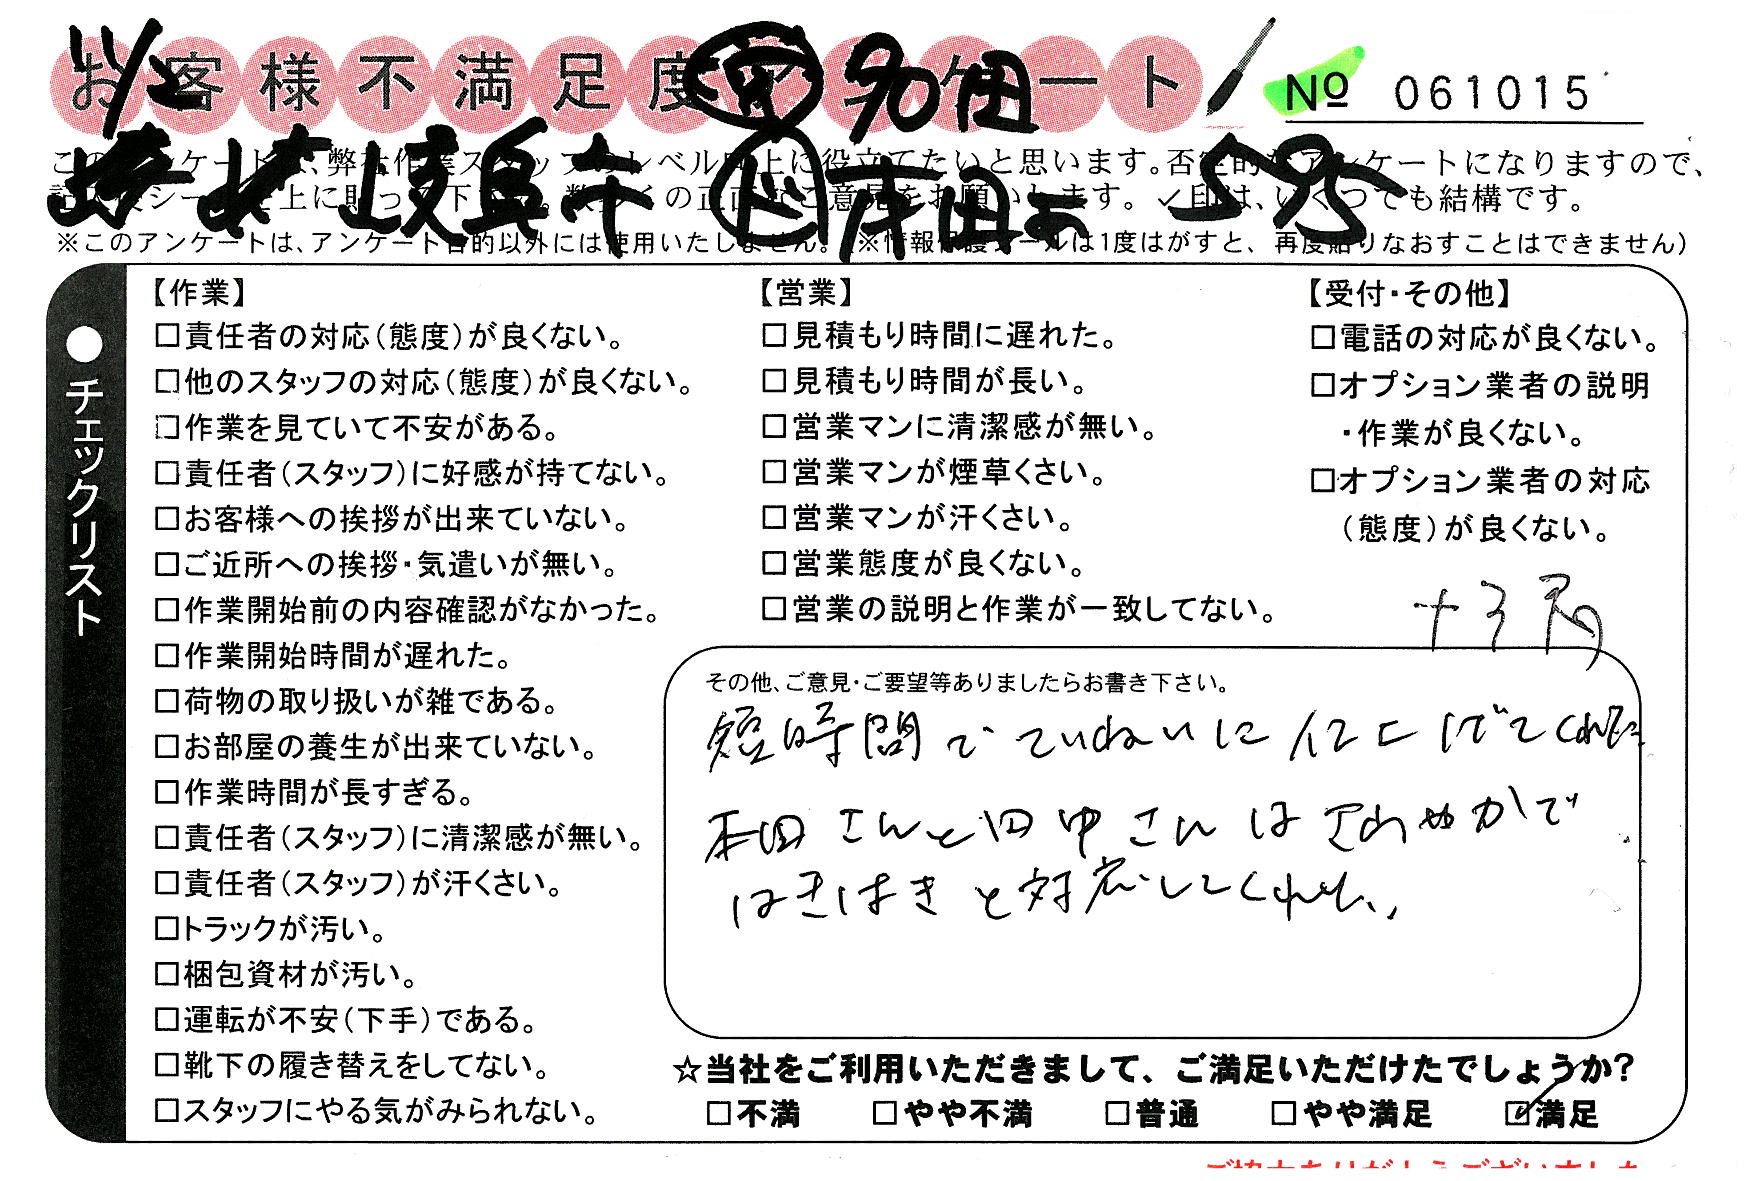 お客様不満足度アンケート
№ 061015
11/2
岐阜市
本田
このアンケートは、弊社作業スタッフのレベル向上に役立てたいと思います。否定的なアンケートになりますので、
記入後シールを上に貼って下さい。数多くの正直なご意見をお願いします。✓印は、いくつでも結構です。
※このアンケートは、アンケート目的以外には使用いたしません。(※情報保護シールは1度はがすと、再度貼りなおすことはできません)
●チェックリスト
【作業】
□責任者の対応(態度)が良くない。
□他のスタッフの対応(態度)が良くない。
□作業を見ていて不安がある。
□責任者(スタッフ)に好感が持てない。
□お客様への挨拶が出来ていない。
□ご近所への挨拶・気遣いが無い。
□作業開始前の内容確認がなかった。
□作業開始時間が遅れた。
□荷物の取り扱いが雑である。
□お部屋の養生が出来ていない。
□作業時間が長すぎる。
□責任者(スタッフ)に清潔感が無い。
□責任者(スタッフ)が汗くさい。
□トラックが汚い。
□梱包資材が汚い。
□運転が不安(下手)である。
□靴下の履き替えをしてない。
□スタッフにやる気がみられない。
【営業】
□見積もり時間に遅れた。
□見積もり時間が長い。
□営業マンに清潔感が無い。
□営業マンが煙草くさい。
□営業マンが汗くさい。
□営業態度が良くない。
□営業の説明と作業が一致してない。
【受付・その他】
□電話の対応が良くない。
□オプション業者の説明
・作業が良くない。
□オプション業者の対応
(態度)が良くない。
その他、ご意見・ご要望等ありましたらお書き下さい。
短時間でていねいに仕上げてくれた
本田さんと田中さんはさわやかで
はきはきと対応してくれた。
☆当社をご利用いただきまして、ご満足いただけたでしょうか?
□不満 □やや不満 □普通 □やや満足 ☑満足
ご協力ありがとうございました